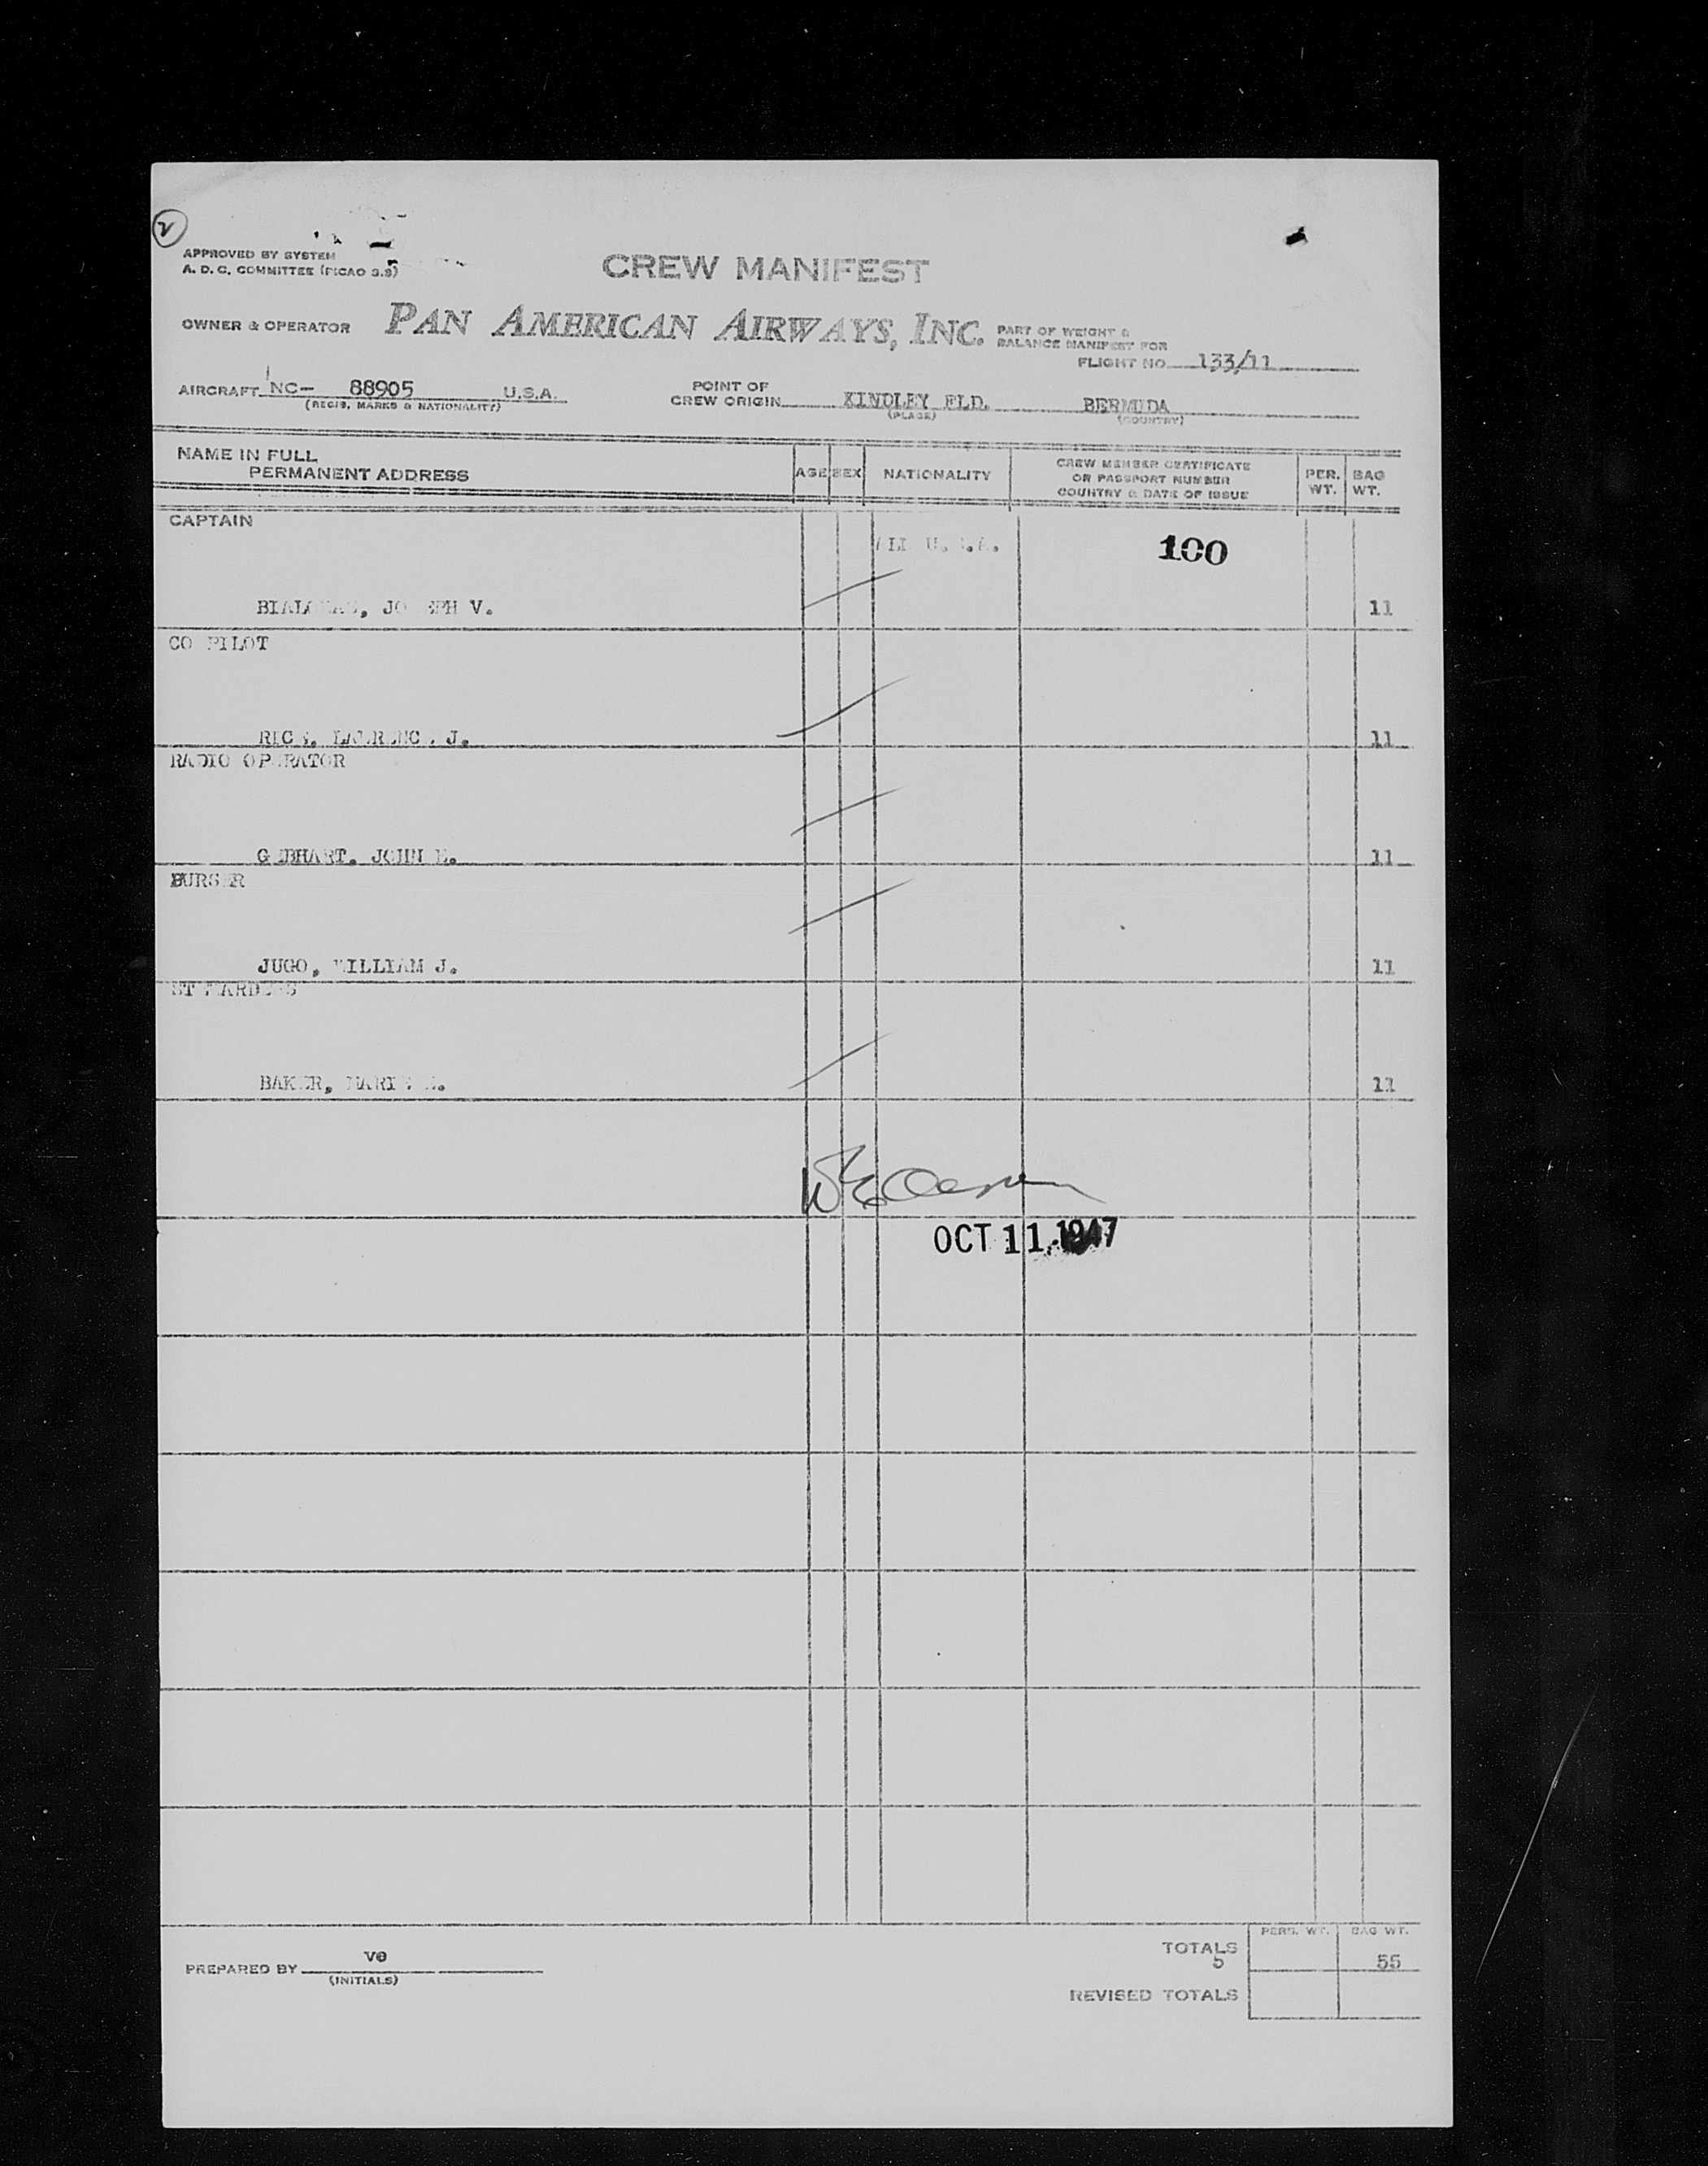 2
APPROVED BY SYSTEM
A. D. C. COMMITTEE (PICAO 3.9)
CREW MANIFEST
OWNER & OPERATOR PAN AMERICAN AIRWAYS, INC. PART OF WEIGHT &
BALANCE MANIFEST FOR
FLIGHT NO. 133/11
AIRCRAFT NC- 88905 U.S.A.
(REGIS, MARKS & NATIONALITY)
POINT OF
CREW ORIGIN KINDLEY FLD. BERMUDA
(PLACE) (COUNTRY)
NAME IN FULL
PERMANENT ADDRESS
AGE SEX NATIONALITY
CREW MEMBER CERTIFICATE
OR PASSPORT NUMBER
COUNTRY & DATE OF ISSUE
PER. WT.
BAG WT.
CAPTAIN
ALL U.S.A. 100
JOSEPH V. 11
CO PILOT
RICE, LAWRENCE J. 11
RADIO OPERATOR
GEBHART, JOHN E. 11
PURSER
JUGO, WILLIAM J. 11
STEWARDESS
BAKER, MARIE 11
OCT 11 1947
PERS. WT. BAG WT.
TOTALS 5 55
PREPARED BY ve
(INITIALS)
REVISED TOTALS